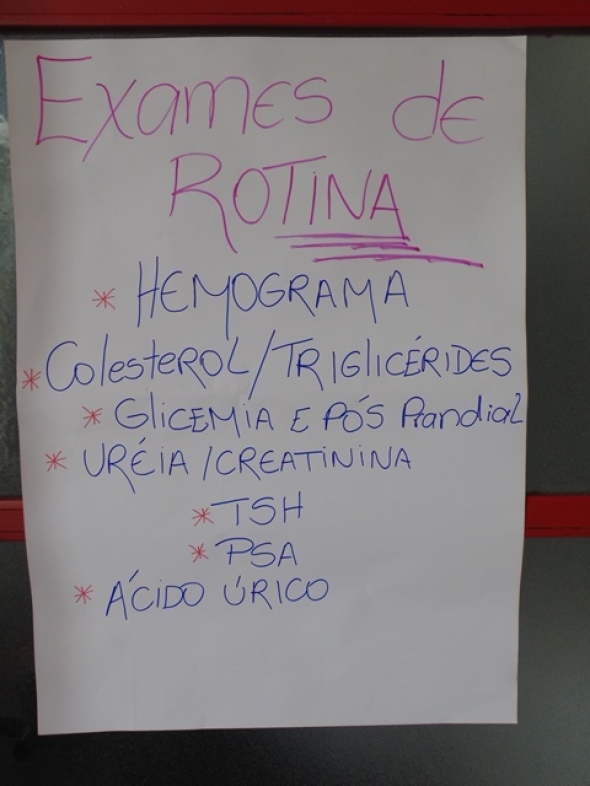 Exames de
ROTINA
* HEMOGRAMA
* Colesterol/TRIGLICÉRIDES
* GLICEMIA E PÓS Prandial
* URÉIA/CREATININA
* TSH
* PSA
* ÁCIDO ÚRICO